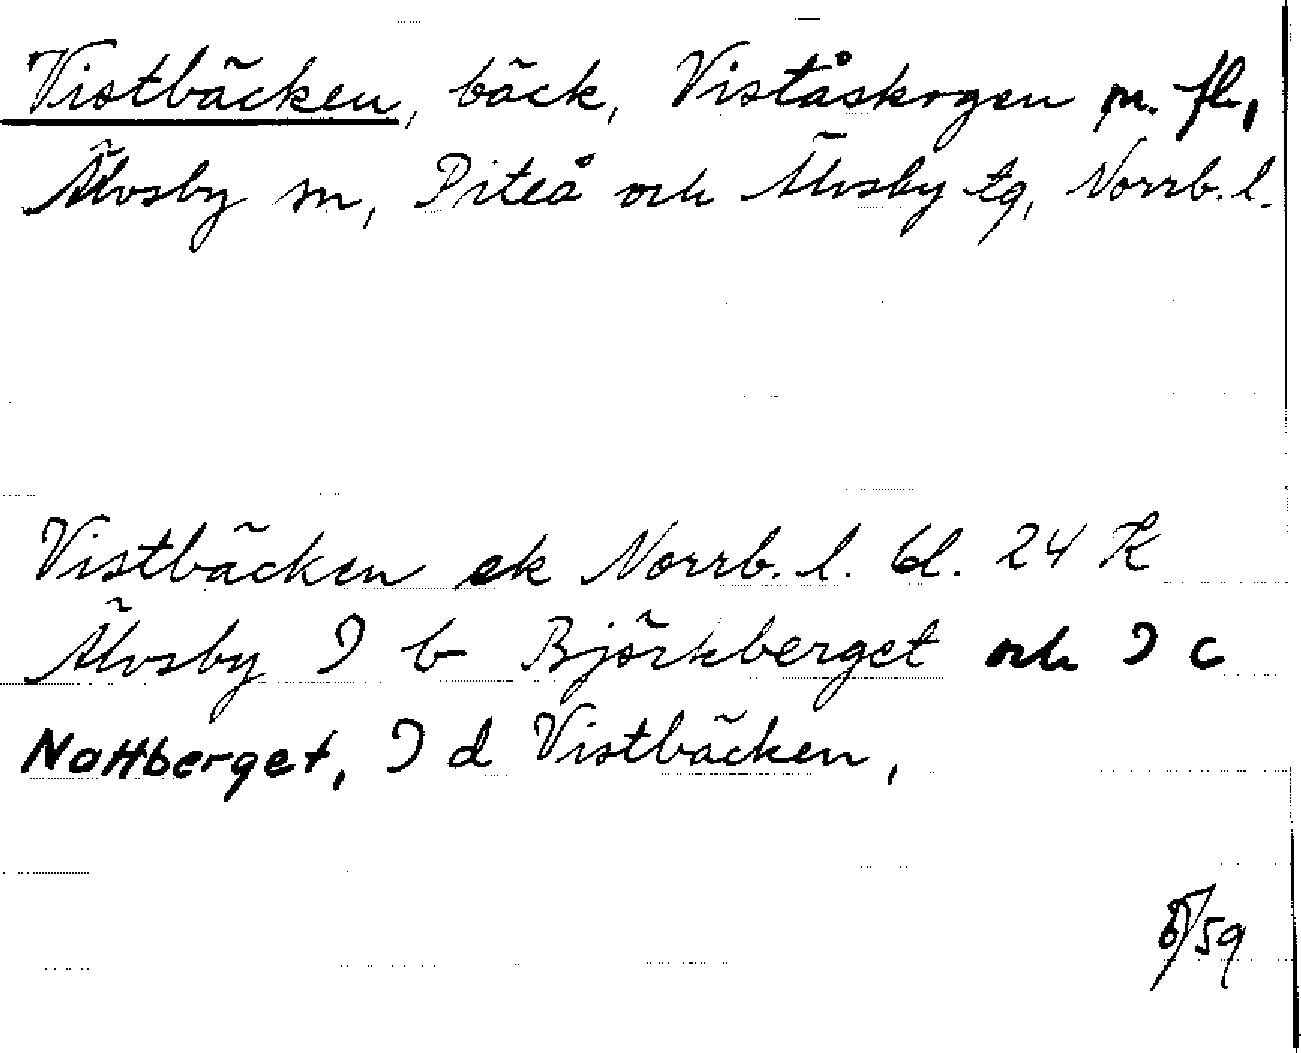 Vistbäcken, bäck, Viståskogen m. fl.,
Älvsby sn, Piteå och Älvsby tg, Norrb. l.
Vistbäcken ek Norrb. l. bl. 24 K
Älvsby J b Björkberget och J c
Nattberget, J d Vistbäcken,
/59